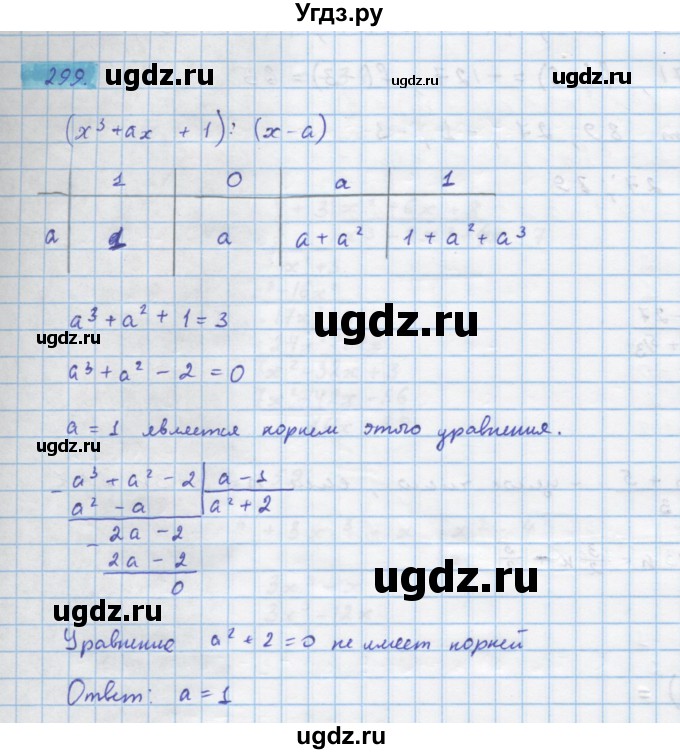 Угдз.ру
299.
ugdz.ru ugdz.ru ugdz.ru
(x³+ax + 1) : (x-a)
1 0 a 1
a 1 a a+a² 1+a²+a³
a³+a²+1=3
ugdz.ru
ugdz.ru
a³+a²-2=0
a=1 является корнем этого уравнения.
ugdz.ru
- a³+a²-2 | a-1
a²-a | a²+2
- 2a-2
2a-2
0
ugdz.ru
ugdz.ru
Уравнение a²+2=0 не имеет корней
Ответ: a=1
ugdz.ru
ugdz.ru